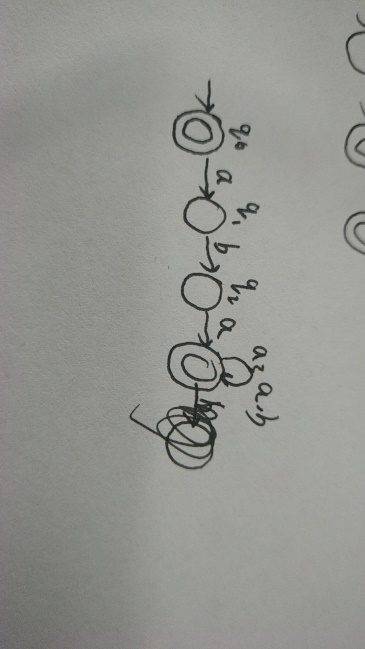 q₀
a
q₁
b
q₂
a
a,b